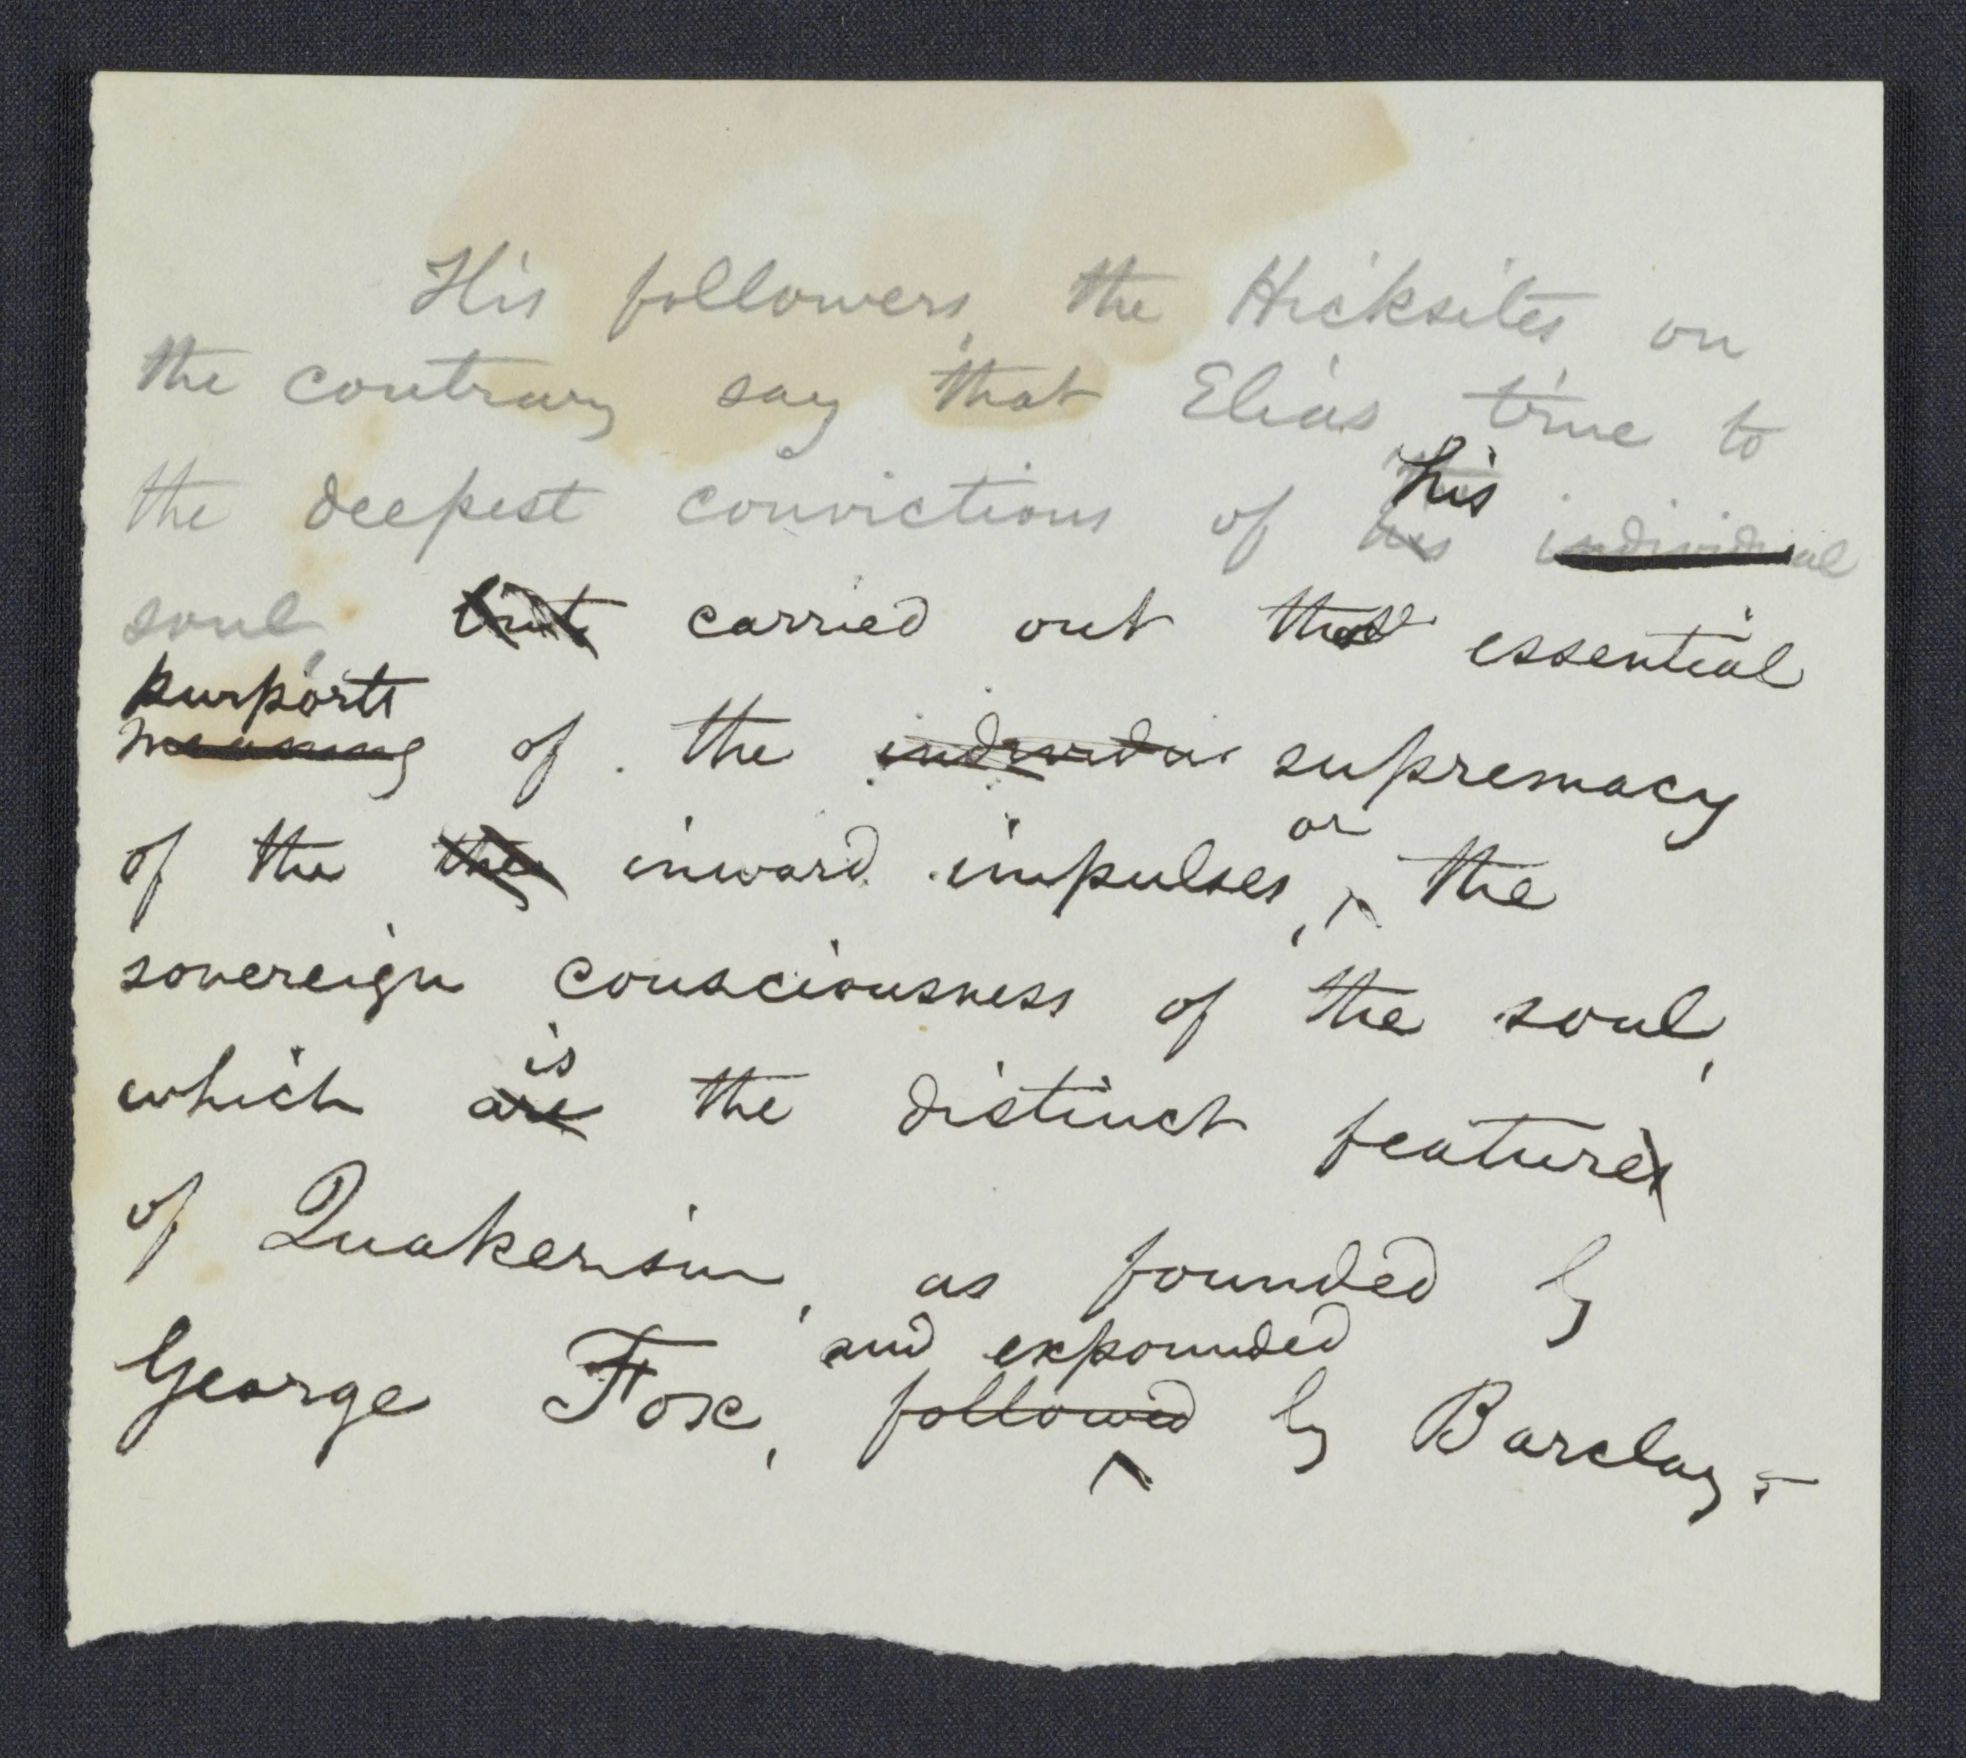 His followers, the Hicksites on
the contrary say that Elias, true to
the deepest convictions of his his individual
soul, but carried out that essential
purports
meaning of the individu supremacy
of the the inward impulses, or the
sovereign consciousness of the soul,
which is are the distinct features
of Quakerism, as founded by
and expounded
George Fox, followed by Barclay,–